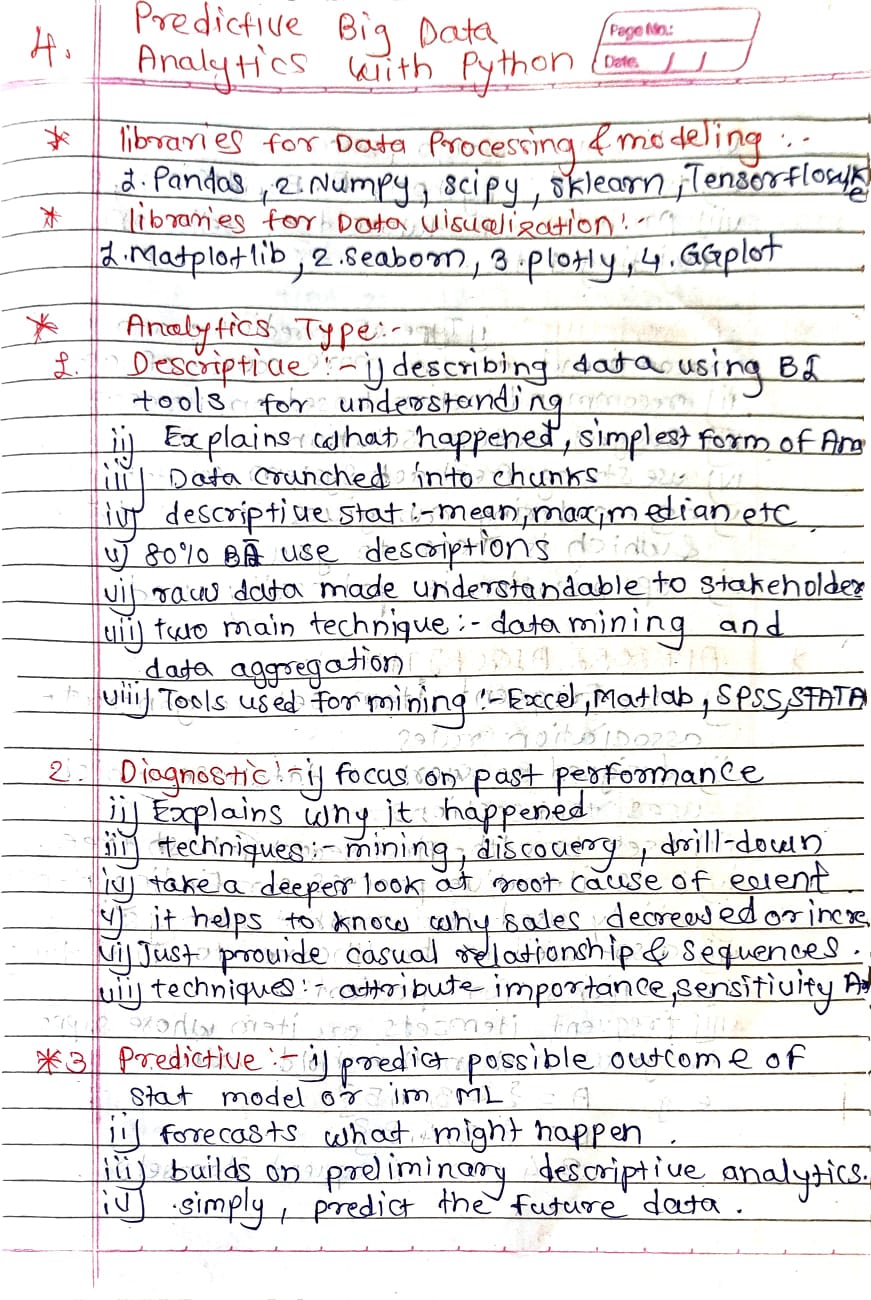 4. Predictive Big Data
Analytics with Python
Page No.:
Date. / /
* libraries for Data Processing & modeling :-
1. Pandas, 2. Numpy, scipy, sklearn, Tensorflow,
* libraries for Data visualization :-
1. Matplotlib, 2. Seaborn, 3. plotly, 4. GGplot
* Analytics Type:-
1. Descriptive :- i) describing data using BI
tools for understanding
ii) Explains what happened, simplest form of Ana
iii) Data crunched into chunks
iv) descriptive stat :- mean, max, median etc
v) 80% BA use descriptions
vi) raw data made understandable to stakeholder
vii) two main technique :- data mining and
data aggregation
viii) Tools used for mining :- Excel, Matlab, SPSS, STATA
2. Diagnostic :- i) focus on past performance
ii) Explains why it happened
iii) techniques :- mining, discovery, drill-down
iv) take a deeper look at root cause of event
v) it helps to know why sales decreased or incre
vi) Just provide casual relationship & sequences.
vii) techniques :- attribute importance, sensitivity An
*3 Predictive :- i) predict possible outcome of
stat model or im ML
ii) forecasts what might happen.
iii) builds on preliminary descriptive analytics.
iv) simply, predict the future data.